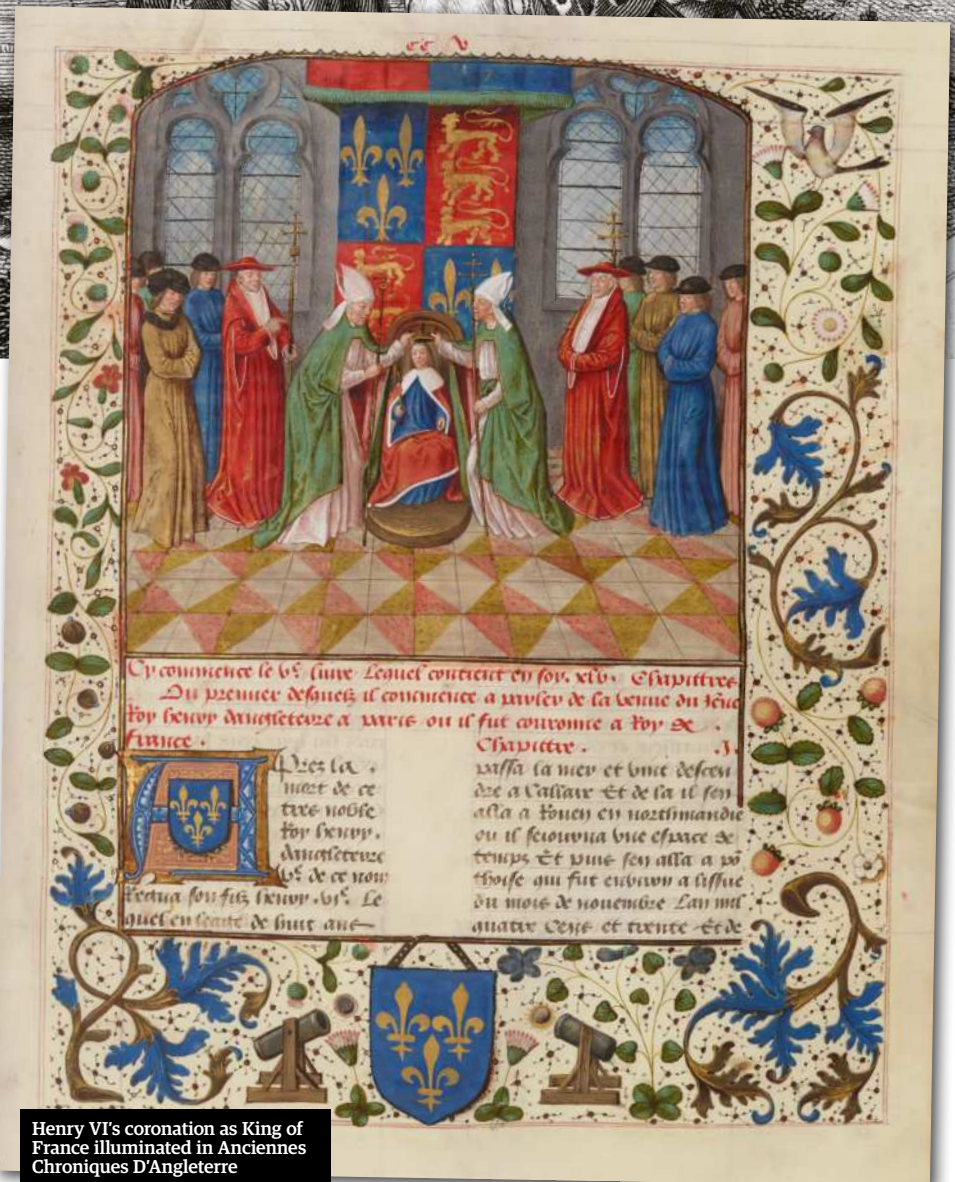 cc v
Cy commence le ve. livre Lequel contient en soy. xlv. Chapittres
Du premier desquelz il commence a parler de la venue du Jeune
Roy henry dangleterre a paris ou il fut couronne a Roy de .
france . Chapittre . J.
Aprez la .
mort de ce
tres noble
Roy henry.
dangleterre
ve. de ce nom
Regna son filz henry .vie. Le
quel en leaige de huit ans
passa la mer et vint descen
dre a Callaix Et de la il sen
alla a Rouen en northmandie
ou il seiourna une espace de
temps Et puis sen alla a po
thoise qui fut environ a lissue
du mois de novembre Lan mil
quatre Cens et trente Et de
Henry VI's coronation as King of
France illuminated in Anciennes
Chroniques D'Angleterre